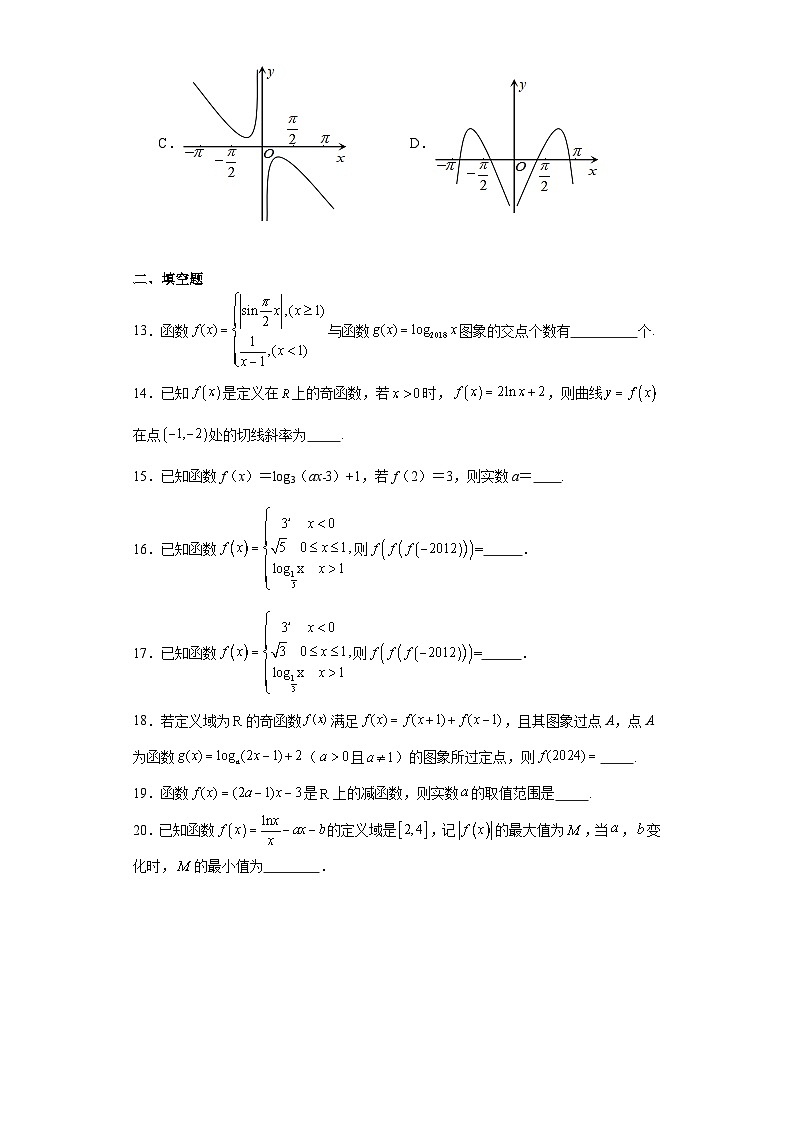 C. y π/2 -π -π/2 O π x D. y -π -π/2 O π/2 π x
二、填空题
13.函数 f(x)={|sin π/2 x|,(x≥1) 1/(x-1),(x<1) 与函数 g(x)=log₂₀₁₈ x 图象的交点个数有__________个.
14.已知 f(x) 是定义在 R 上的奇函数,若 x>0 时, f(x)=2ln x+2 ,则曲线 y=f(x)
在点 (-1,-2) 处的切线斜率为_____.
15.已知函数 f(x)=log₃(ax-3)+1,若 f(2)=3,则实数 a=____.
16.已知函数 f(x)={3ˣ x<0 √5 0≤x≤1, log_{1/3}x x>1 则 f(f(f(-2012)))=______.
17.已知函数 f(x)={3ˣ x<0 √3 0≤x≤1, log_{1/3}x x>1 则 f(f(f(-2012)))=______.
18.若定义域为 R 的奇函数 f(x) 满足 f(x)=f(x+1)+f(x-1) ,且其图象过点 A,点 A
为函数 g(x)=logₐ(2x-1)+2 (a>0 且 a≠1)的图象所过定点,则 f(2024)= _____.
19.函数 f(x)=(2a-1)x-3 是 R 上的减函数,则实数 a 的取值范围是_____.
20.已知函数 f(x)=lnx/x-ax-b 的定义域是[2,4],记 |f(x)| 的最大值为 M ,当 a , b 变
化时, M 的最小值为________.